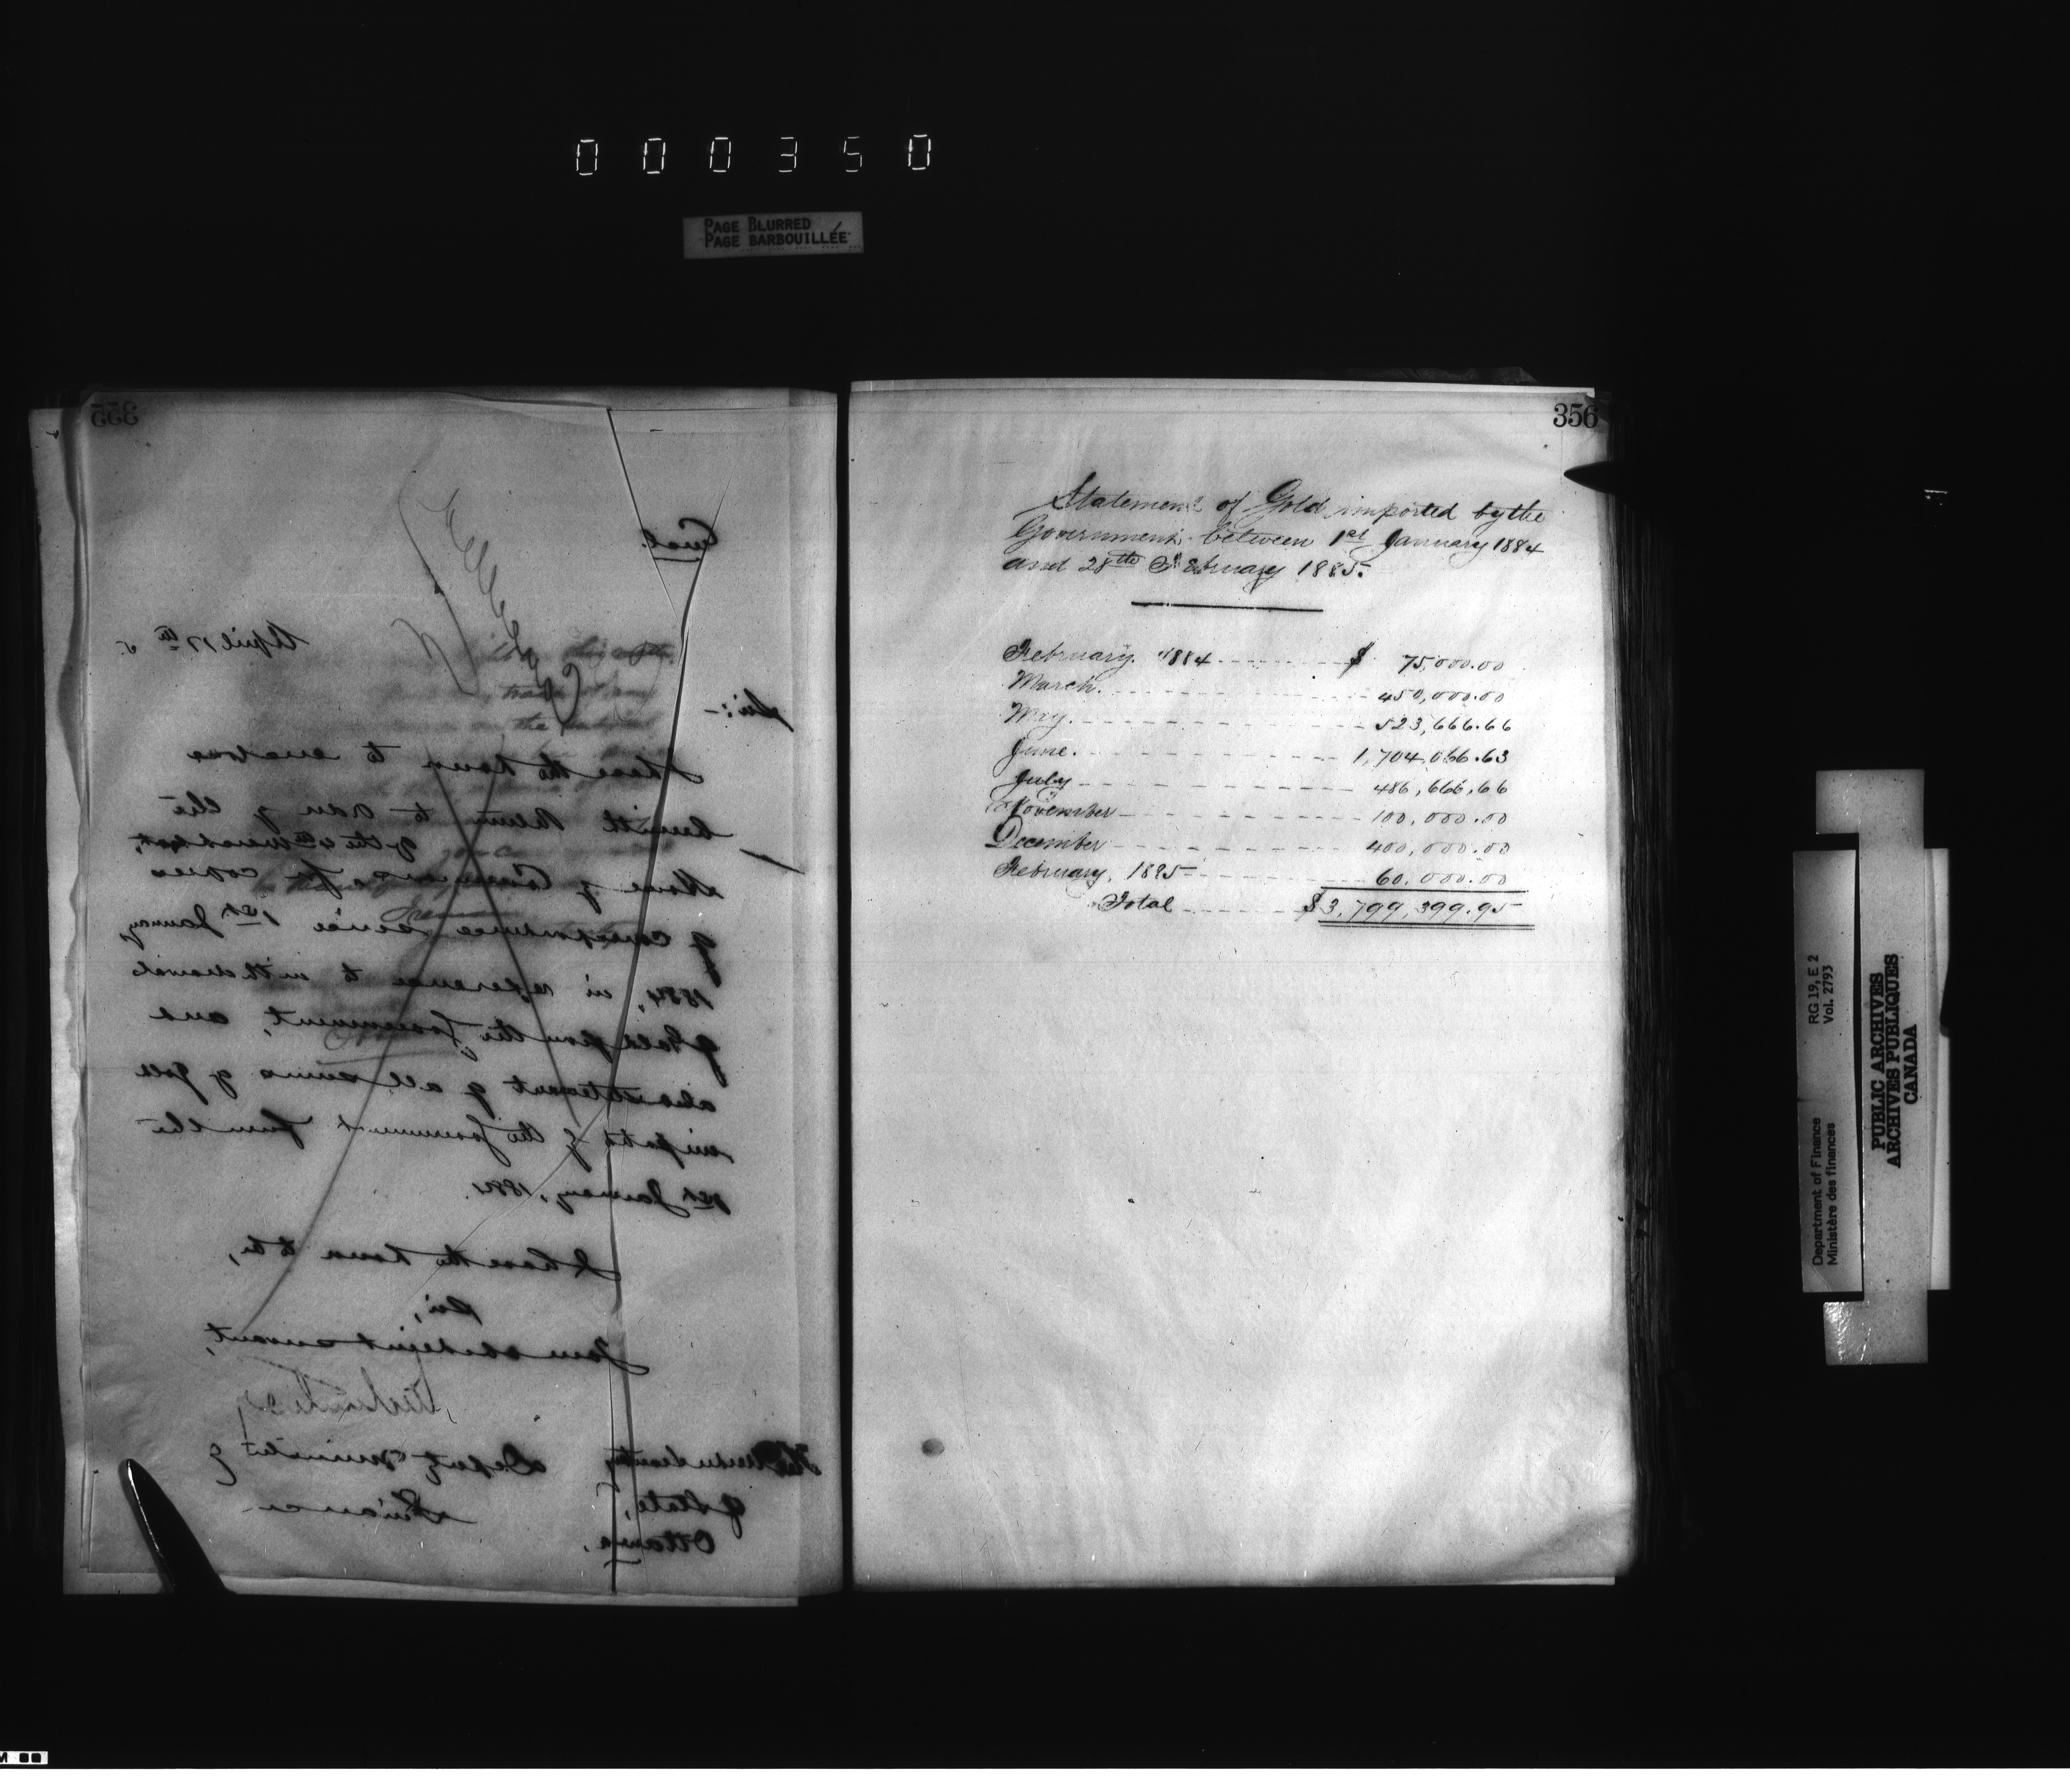 000350
PAGE BLURRED
PAGE BARBOUILLÉE
355
Encl.
April 17th 5
Sir:-
I have the honor to enclose
herewith Return to Order of the
House of Commons for copies
of the 4th
of correspondence since 1st January
1884, in reference to withdrawals
of Gold from the Government, and
also statement of all sums of gold
imported by the Government from the
1st January, 1884.
I have the honor to be,
Sir,
Your obedient servant,
Deputy Minister of
Finance
The Under Secretary
of State,
Ottawa.
356
Statement of Gold imported by the
Government between 1st January 1884
and 28th February 1885.
February 1884 $ 75,000.00
March. 450,000.00
May. 523,666.66
June. 1,704,066.63
July 486,666.66
November 100,000.00
December 400,000.00
February, 1885 60,000.00
Total $3,799,399.95
RG 19, E 2
Vol. 2793
Department of Finance
Ministère des finances
PUBLIC ARCHIVES
ARCHIVES PUBLIQUES
CANADA